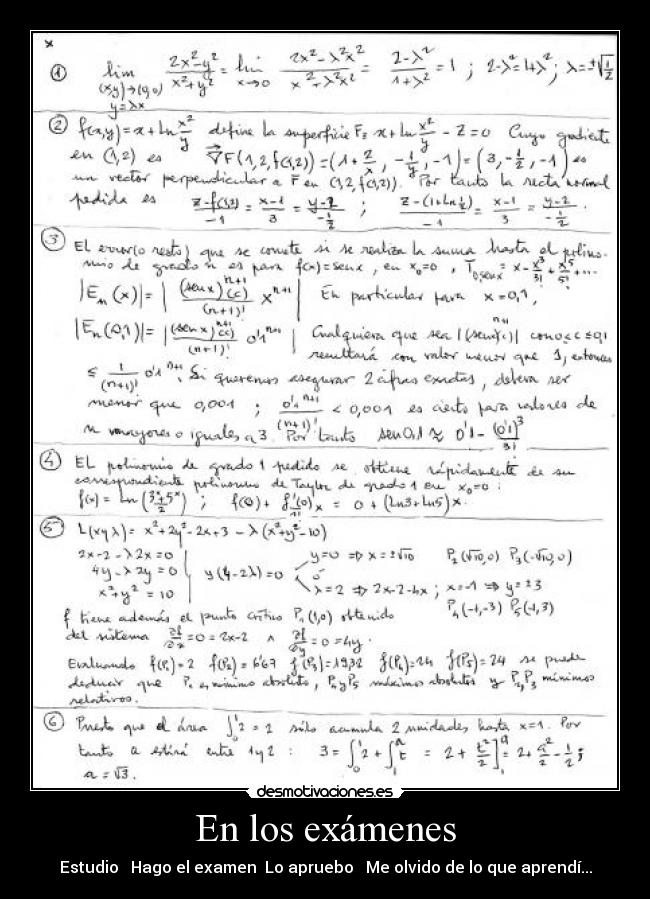 x
① lim 2x²-y² / x²+y² = lim 2x²-λ²x² / x²+λ²x² = 2-λ² / 1+λ² = 1 ; 2-λ²=1+λ² ; λ=±√1/2
(x,y)→(0,0) x→0
y=λx
② f(x,y)=x+ln x²/y define la superficie F≡ x+ln x²/y - z=0 Cuyo gradiente
en (1,2) es ∇F(1,2,f(1,2))=(1+2/x, -1/y, -1)=(3,-1/2,-1) es
un vector perpendicular a F en (1,2,f(1,2)). Por tanto la recta normal
pedida es z-f(1,2) / -1 = x-1 / 3 = y-2 / -1/2 ; z-(1+ln 1/2) / -1 = x-1 / 3 = y-2 / -1/2 .
③ El error(o resto) que se comete si se realiza la suma hasta el polino-
mio de grado n es para f(x)=senx, en x₀=0, T₀,senx = x-x³/3!+x⁵/5!+...
|Eₙ(x)|= | (senx)ⁿ⁺¹(c) / (n+1)! xⁿ⁺¹ | En particular para x=0,1,
|Eₙ(0,1)|= | (senx)ⁿ⁺¹(c) / (n+1)! 0'1ⁿ⁺¹ | Cualquiera que sea |(senx)ⁿ⁺¹(c)| con 0≤c≤0'1
resultará con valor menor que 1, entonces
≤ 1/(n+1)! 0'1ⁿ⁺¹. Si queremos asegurar 2 cifras exactas, deberá ser
menor que 0,001 ; 0'1ⁿ⁺¹/(n+1)! < 0,001 es cierto para valores de
n mayores o iguales a 3. Por tanto sen0,1 ≈ 0'1 - (0'1)³/3!
④ EL polinomio de grado 1 pedido se obtiene rápidamente de su
correspondiente polinomio de Taylor de grado 1 en x₀=0 :
f(x) = ln (3ˣ+5ˣ / 2) ; f(0)+ f'(0)/1! x = 0 + (Ln3+Ln5)x.
⑤ L(x,y,λ)= x²+2y²-2x+3 - λ(x²+y²-10)
2x-2-λ2x=0
4y-λ2y=0
x²+y²=10
y(4-2λ)=0
y=0 ⇒ x=±√10 P₂(√10,0) P₃(-√10,0)
ó
λ=2 ⇒ 2x-2-4x ; x=-1 ⇒ y=±3
P₄(-1,-3) P₅(-1,3)
f tiene además el punto crítico P₁(1,0) obtenido
del sistema ∂f/∂x =0=2x-2 ∧ ∂f/∂y =0=4y.
Evaluando f(P₁)=2 f(P₂)=6'67 f(P₃)=19,32 f(P₄)=24 f(P₅)=24 se puede
deducir que P₁ es mínimo absoluto, P₄ y P₅ máximos absolutos y P₂,P₃ mínimos
relativos.
⑥ Puesto que el área ∫₀¹2=2 sólo acumula 2 unidades hasta x=1. Por
tanto a estirá entre 1 y 2 : 3=∫₀¹2+∫₁ᵃt = 2+ t²/2]₁ᵃ = 2+a²/2-1/2 ;
a=√3.
desmotivaciones.es
En los exámenes
Estudio Hago el examen Lo apruebo Me olvido de lo que aprendí...